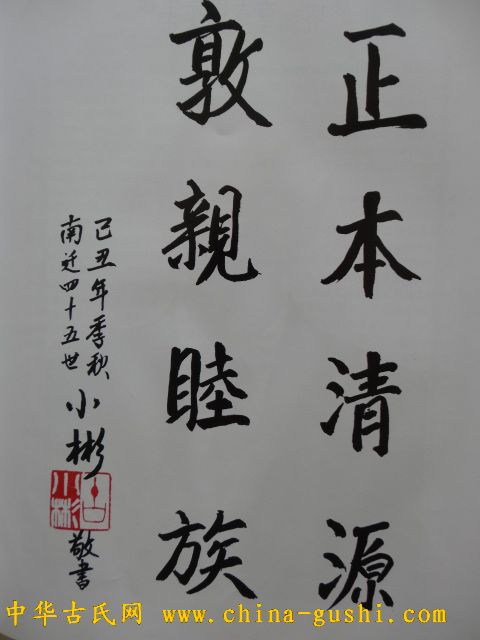 正本清源
敦親睦族
己丑年季秋
南迁四十五世 小彬 敬書
古小彬
中华古氏网 www.china-gushi.com